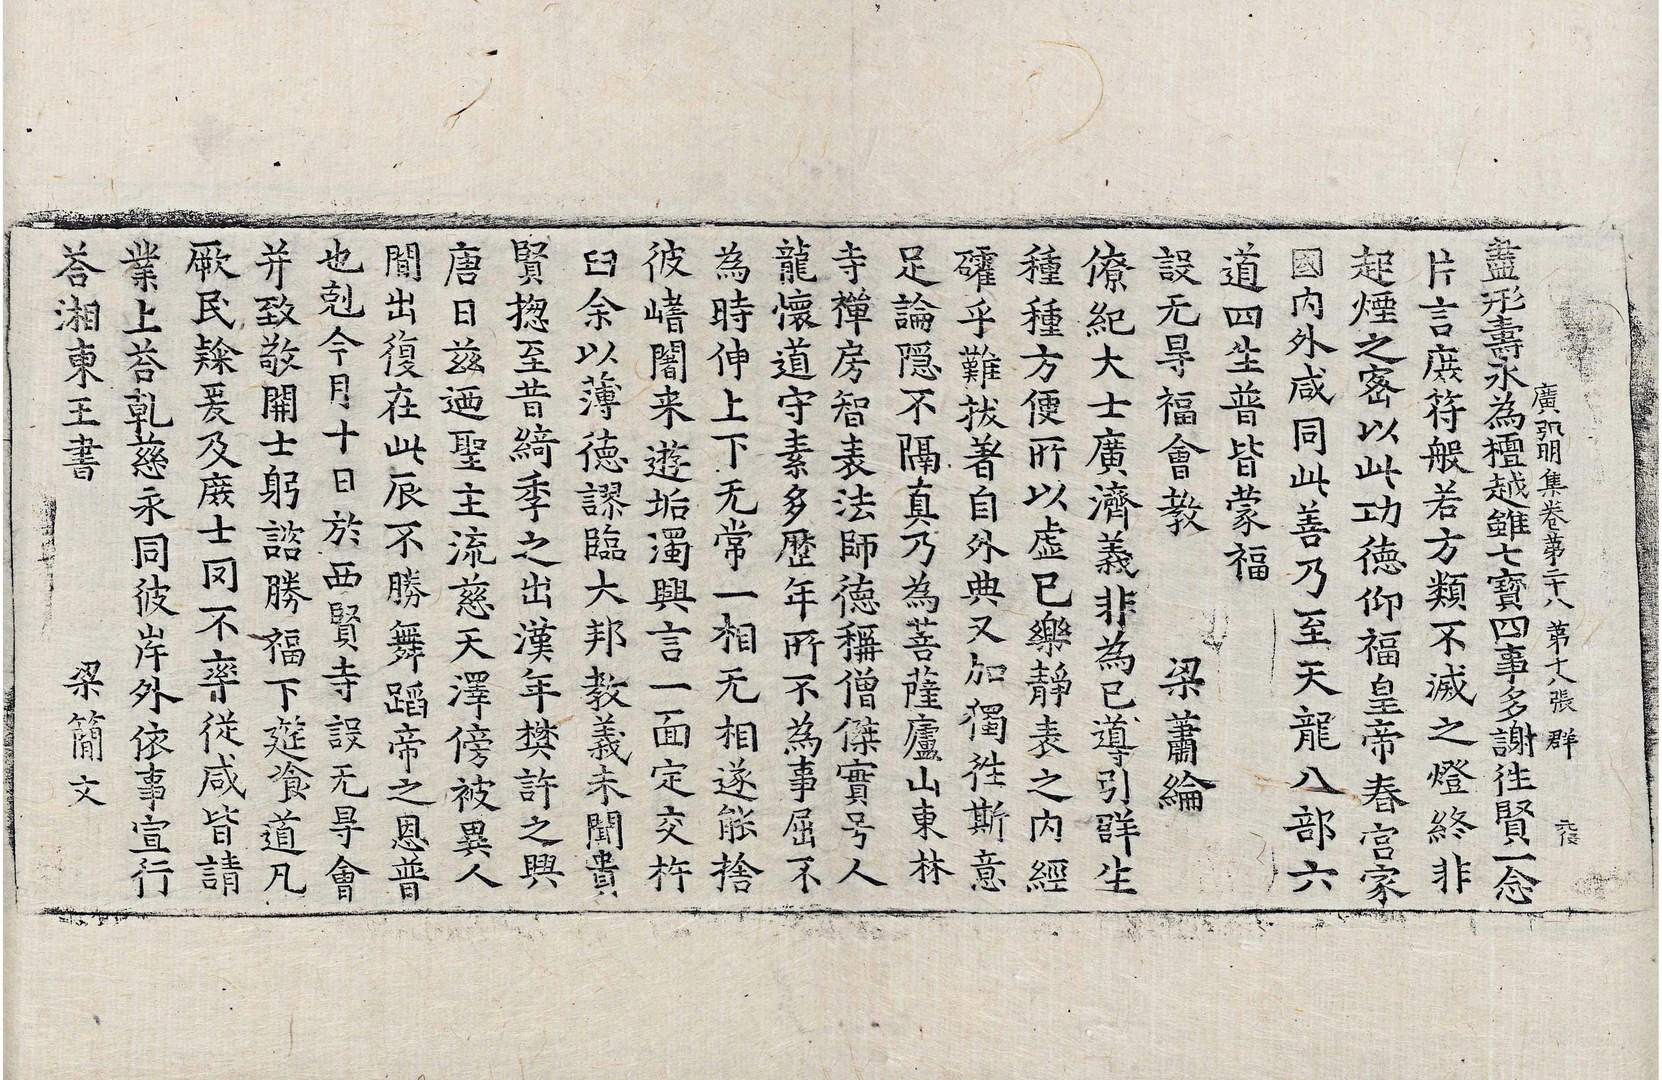 廣弘明集卷苐二十八 苐十八張 群
盡形壽永為檀越雖七寶四事多謝徃賢一念
片言庶符般若方類不滅之燈終非
起煙之宻以此功德仰福皇帝春宫家
國内外咸同此善乃至天龍八部六
道四生普皆蒙福
設无㝵福會教 梁蕭綸
僚紀大士廣濟義非為已導引群生
種種方便所以虚已樂静表之内經
確乎難拔著自外典又加獨徃斯意
足論隠不隔真乃為菩薩廬山東林
寺禪房智表法師德稱僧傑實号人
龍懷道守素多歴年所不為事屈不
為時伸上下无常一相无相遂能捨
彼嶫闍来遊垢濁興言一面定交杵
臼余以薄德謬臨大邦教義未聞貴
賢揔至昔綺季之出漢年樊許之興
唐日兹迺聖主流慈天澤傍被異人
間出復在此辰不勝舞蹈帝之恩普
也剋今月十日於西賢寺設无㝵會
并致敬開士躬諮勝福下筵飡道凡
厥民隸爰及庶士罔不率従咸皆請
業上荅乹慈永同彼岸外依事宣行
荅湘東王書 梁簡文